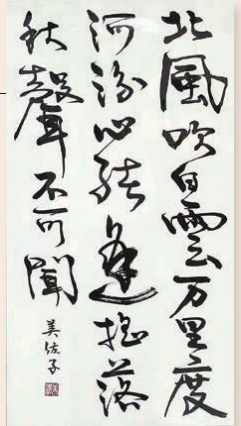 北風吹白雲万里度
河汾心緒逢搖落
秋聲不可聞
美佐子